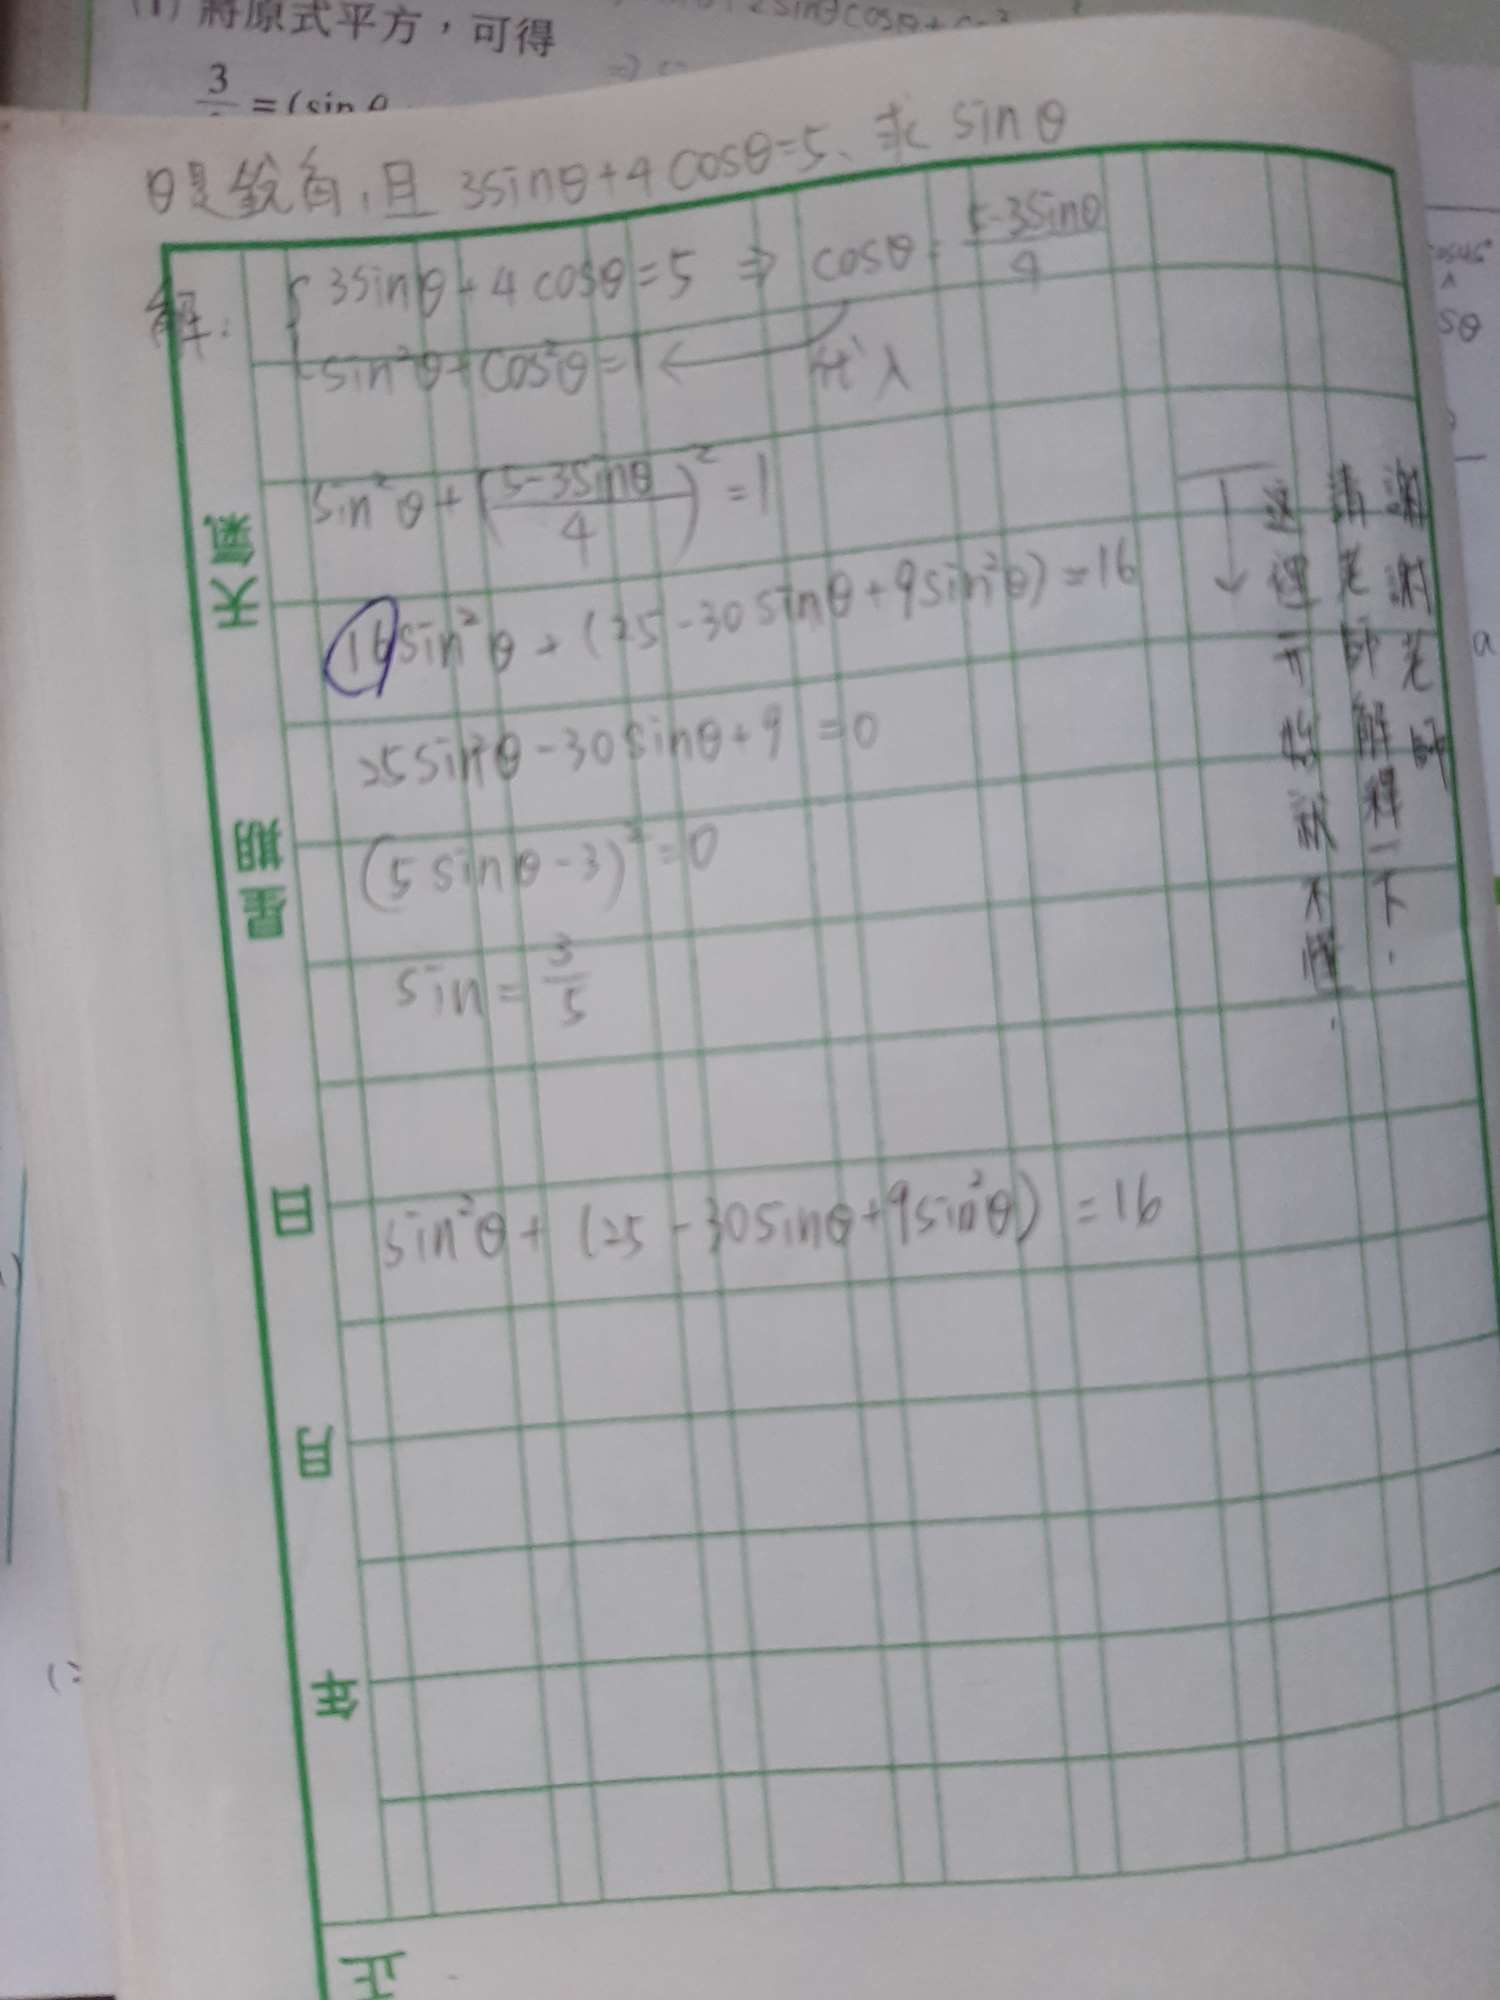 (1) 將原式平方，可得
3/ = (sin θ
θ是銳角，且 3sinθ+4cosθ=5、求 sinθ
解：
3sinθ+4cosθ=5 ⇒ cosθ= (5-3sinθ)/4
sin²θ+cos²θ=1 ← 代入
sin²θ+((5-3sinθ)/4)²=1
16sin²θ+(25-30sinθ+9sin²θ)=16
25sin²θ-30sinθ+9=0
(5sinθ-3)²=0
sin=3/5
sin²θ+(25-30sinθ+9sin²θ)=16
這裡開始就不懂.
請老師解釋一下.
謝謝老師
年 月 日 星期 天氣